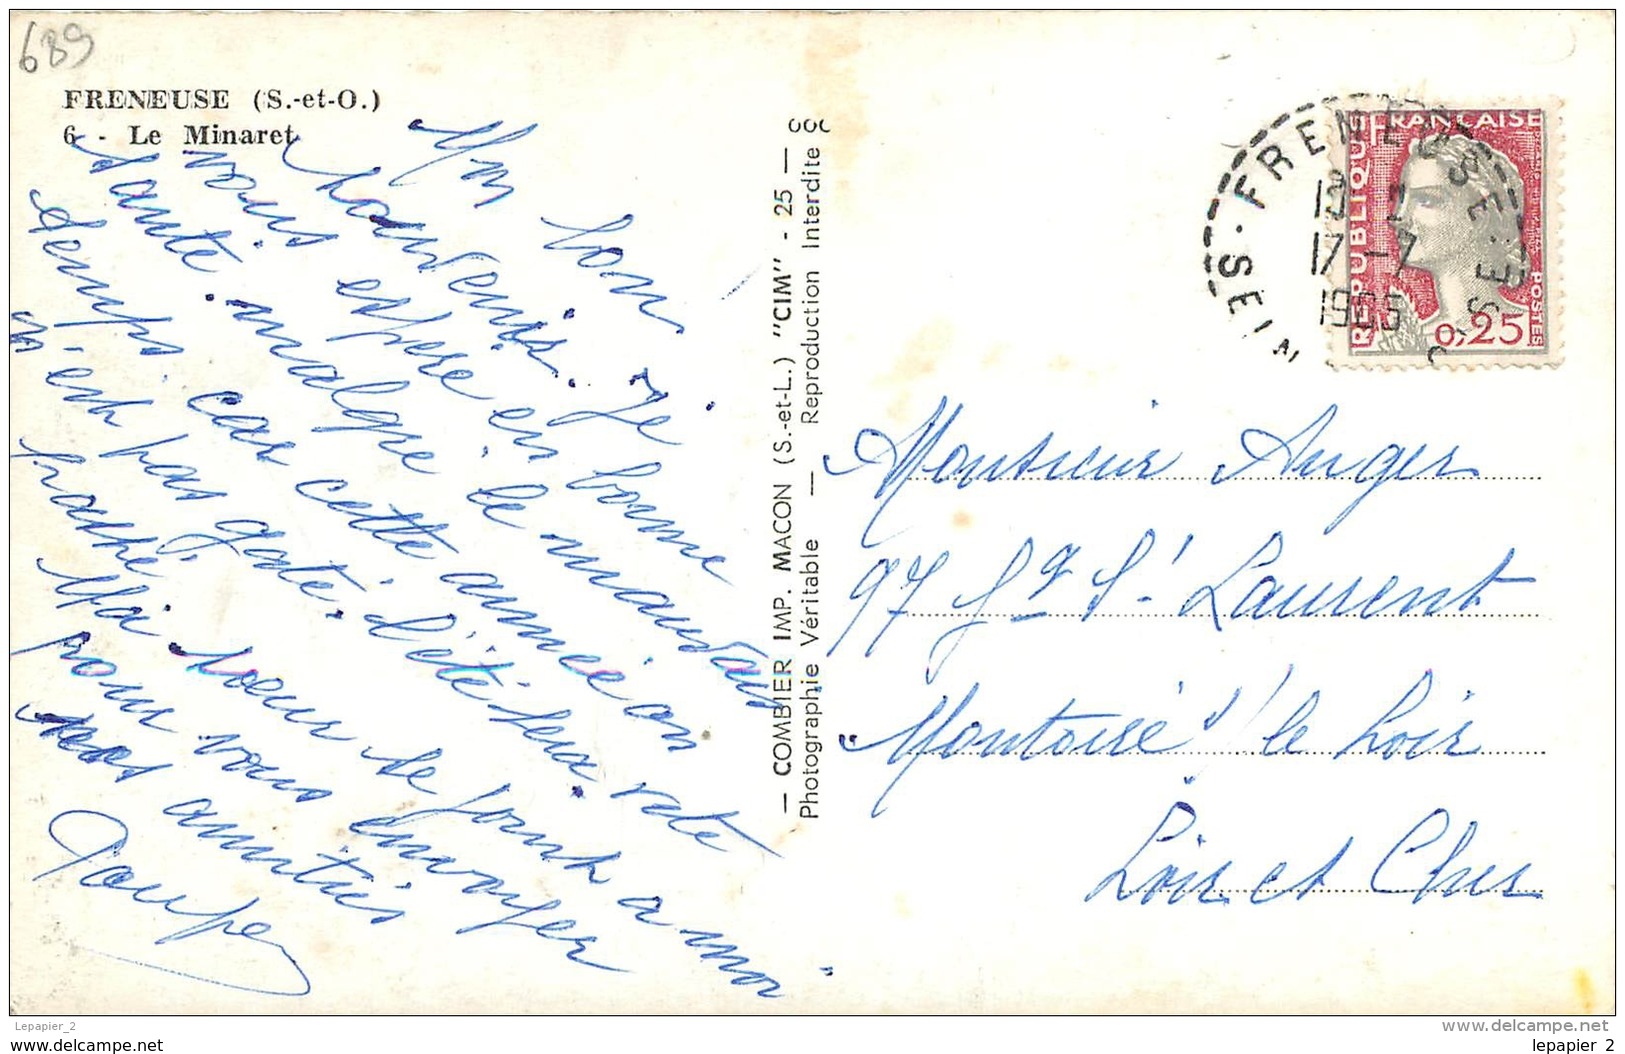 689
FRENEUSE (S.-et-O.)
6 - Le Minaret
Un bon
souvenir. Je
vous espère en bonne
santé. malgré le mauvais
temps car cette année on
n'est pas gaté. l'été sera raté
Ma soeur se joint a moi
pour vous envoyer
nos amitiés
— COMBIER IMP. MACON (S.-et-L.) "CIM" - 25 —
Photographie Véritable — Reproduction Interdite
FRENEUSE
S.-ET-OISE
17 -7
RÉPUBLIQUE FRANÇAISE
POSTES
0,25
Monsieur Auger
97 Fg St Laurent
Montoire s/ le Loir
Loir et Cher
Lepapier_2
www.delcampe.net
www.delcampe.net
lepapier_2